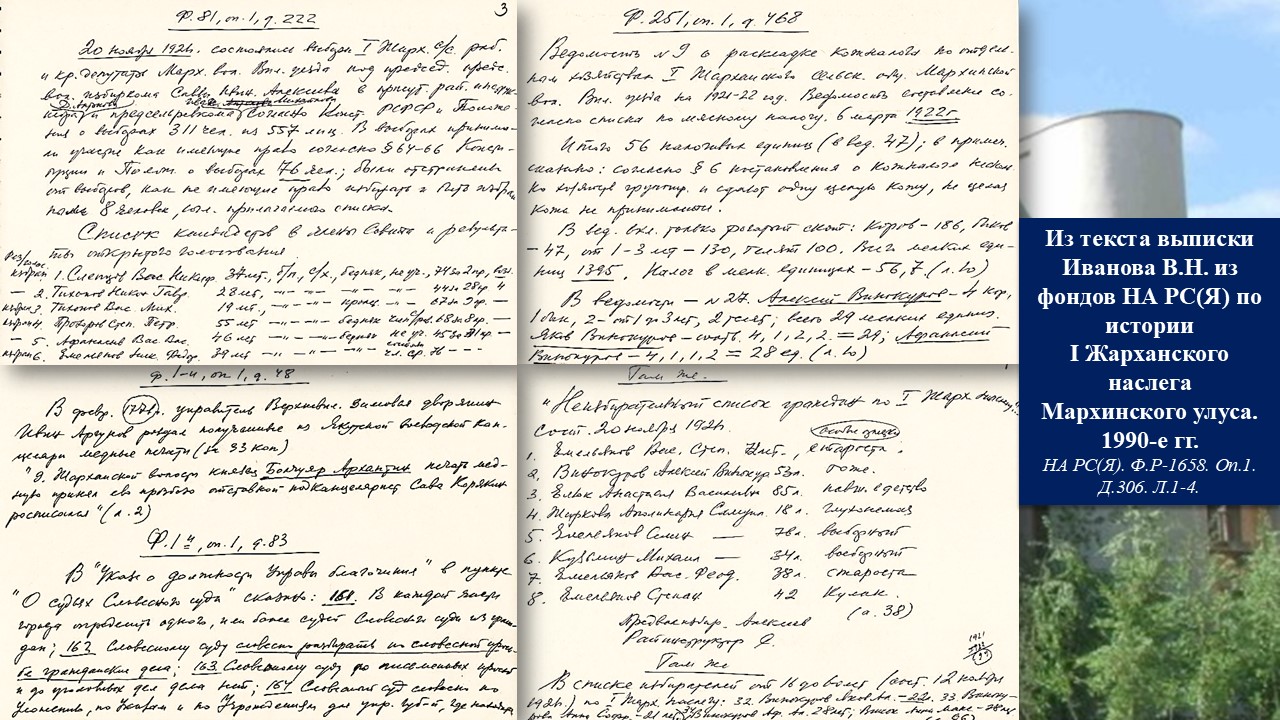 Ф. 81, оп. 1, д. 222
3
20 ноября 1926г. состоялись выборы I Жарх. с/с. раб.
и кр. депутаты Марх. вол. Вил. уезда под председ. предс.
вол. избиркома Саввы Алексеева в присут. рай.
и председ. Согласно Конст. РСФСР и Положе-
ния о выборах 311 чел. из 557 лиц. В выборах принима-
ли участие как имеющие право согласно § 64-66 Консти-
туции и Полож. о выборах 76 чел.; были отстранены
от выборов, как не имеющие право избирать и быть избран
ными 8 человек, согл. прилагаемого списка.
Список кандидатов в члены Совета и результа-
ты открытого голосования
1. Слепцов Вас. 37 лет, б/п, с/х, бедняк,
2. Тихонов 28 лет,
3. Тихонов Вас. Мих. 19 лет,
4. Прокоров Степ. Петр. 55 лет бедняк
5. Афанасьев Вас. Вас. 46 лет
6. Емельянов Ник. Федор. 39 лет
Ф. 251, оп. 1, д. 468
Ведомость № 9 о раскладке кожналога по отдель-
ным хозяйствам I Жарханского сельск. общ. Мархинской
вол. Вил. уезда на 1921-22 год. Ведомость составлена со-
гласно списка по мясному налогу. 6 марта 1922г
Итого 56 налоговых единиц (в вед. 47); в примеч.
сказано: согласно § 6 постановления о кожналоге несколь
ко хозяйств группир. и сдают одну целую кожу, не целая
кожа не принимается.
В вед. вкл. только рогатый скот: Коров - 186,
- 47, от 1-3 лет - 130, телят 100. Всего мелких еди-
ниц 1395. Налог в мелк. единицах - 56,7 (л. 10)
В ведомости - № 27. Алексей Винокуров - 4 кор,
1 бык, 2 - от 1 до 3 лет, 2 телят; всего 29 мелких единиц.
Яков Винокуров - соотв. 4, 1, 2, 2. = 29; Афанасий
Винокуров - 4, 1, 1, 2 = 28 ед. (л. 10)
ф. 1-и, оп 1, д. 48
В февр. управитель Верхневил. зимовья дворянин
Иван Аргунов раздал полученные из Якутской воеводской кан-
целярии медные печати (по 33 коп)
"9. Жарханской волости князец Болчуяр Аркантин печать мед-
ную принял ево прозьбою отставной подканцелярист Сава Корякин
росписался" (л. 2)
Ф. 1 и, оп. 1, д. 83
В "Указе о должности Управы благочиния" в пункте
"О судьях Словесного суда" сказано: 161. В каждой части
города определить одного, или более судей Словесного суда из
162. Словесному суду словесно разбирать
гражданския дела; 163. Словесному суду до письменных
и до уголовных дел дела нет; 164 Словесной суд словесно по
по Указам и по Учреждениям для упр. губ-й, где
Там же.
"Неизбирательный список граждан по I Жарх. наслегу
Сост. 20 ноября 1926.
1. Емельянов Вас. Степ. старость.
2. Винокуров Алексей Винокур 53 л. тоже.
3. Анастасия Васильевна 85 л. в детство
4. Жиркова Аполинария 18 л. глухонемая
5. Емельянов Семен — 78 л.
6. Кузьмин Михаил — 34 л.
7. Емельянов Вас. Феод. 38 л. староста
8. Емельянов Степан 42 Кулак.
(л. 38)
Предволизбир. Алексеев
Райинструктор
Там же
В списке избирателей от 18 до лет (сост. 12 ноября
1926г.) по I Жарх. наслегу: 32. Винокуров
Из текста выписки
Иванова В.Н. из
фондов НА РС(Я) по
истории
I Жарханского
наслега
Мархинского улуса.
1990-е гг.
НА РС(Я). Ф.Р-1658. Оп.1.
Д.306. Л.1-4.